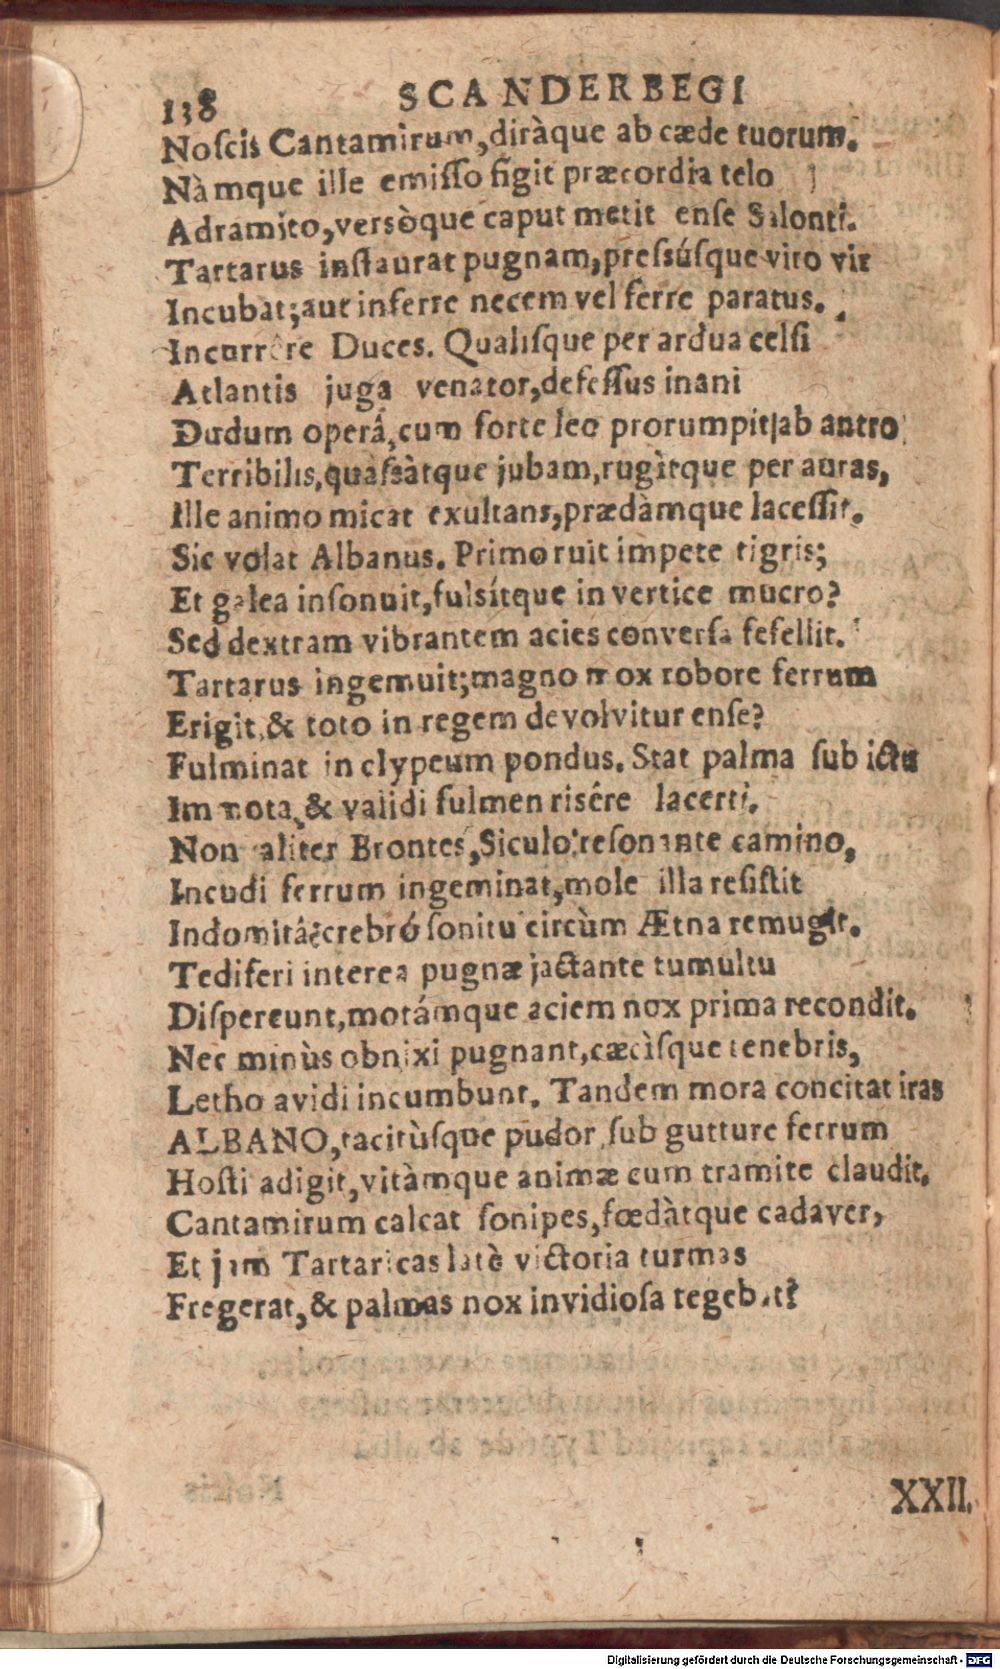 138 SCANDERBEGI
Noſcis Cantamirum, diràque ab cæde tuorum.
Nàmque ille emiſſo figit præcordia telo
Adramito, versòque caput metit enſe Salonti.
Tartarus inſtaurat pugnam, preſsúſque viro vir
Incubat; aut inferre necem vel ferre paratus.
Incurrêre Duces. Qualiſque per ardua celſi
Atlantis juga venator, defeſſus inani
Dudum operâ, cum forte leo prorumpit ab antro
Terribilis, quaſsàtque jubam, rugìtque per auras,
Ille animo micat exultans, prædàmque laceſſit.
Sic volat Albanus. Primo ruit impete tigris;
Et galea inſonuit, fulsítque in vertice mucro?
Sed dextram vibrantem acies converſa fefellit.
Tartarus ingemuit; magno mox robore ferrum
Erigit, & toto in regem devolvitur enſe?
Fulminat in clypeum pondus. Stat palma ſub ictu
Immota, & validi fulmen risêre lacerti.
Non aliter Brontes, Siculo reſonante camino,
Incudi ferrum ingeminat, mole illa reſiſtit
Indomitâ; crebró ſonitu circùm Ætna remugit.
Tediferi interea pugnæ jactante tumultu
Diſpereunt, motámque aciem nox prima recondit.
Nec minùs obnixi pugnant, cæcìſque tenebris,
Letho avidi incumbunt. Tandem mora concitat iras
ALBANO, tacitùſque pudor ſub gutture ferrum
Hoſti adigit, vitàmque animæ cum tramite claudit.
Cantamirum calcat ſonipes, fœdàtque cadaver,
Et jam Tartaricas latè victoria turmas
Fregerat, & palmas nox invidioſa tegebat?
XXII.
Digitalisierung gefördert durch die Deutsche Forschungsgemeinschaft - DFG